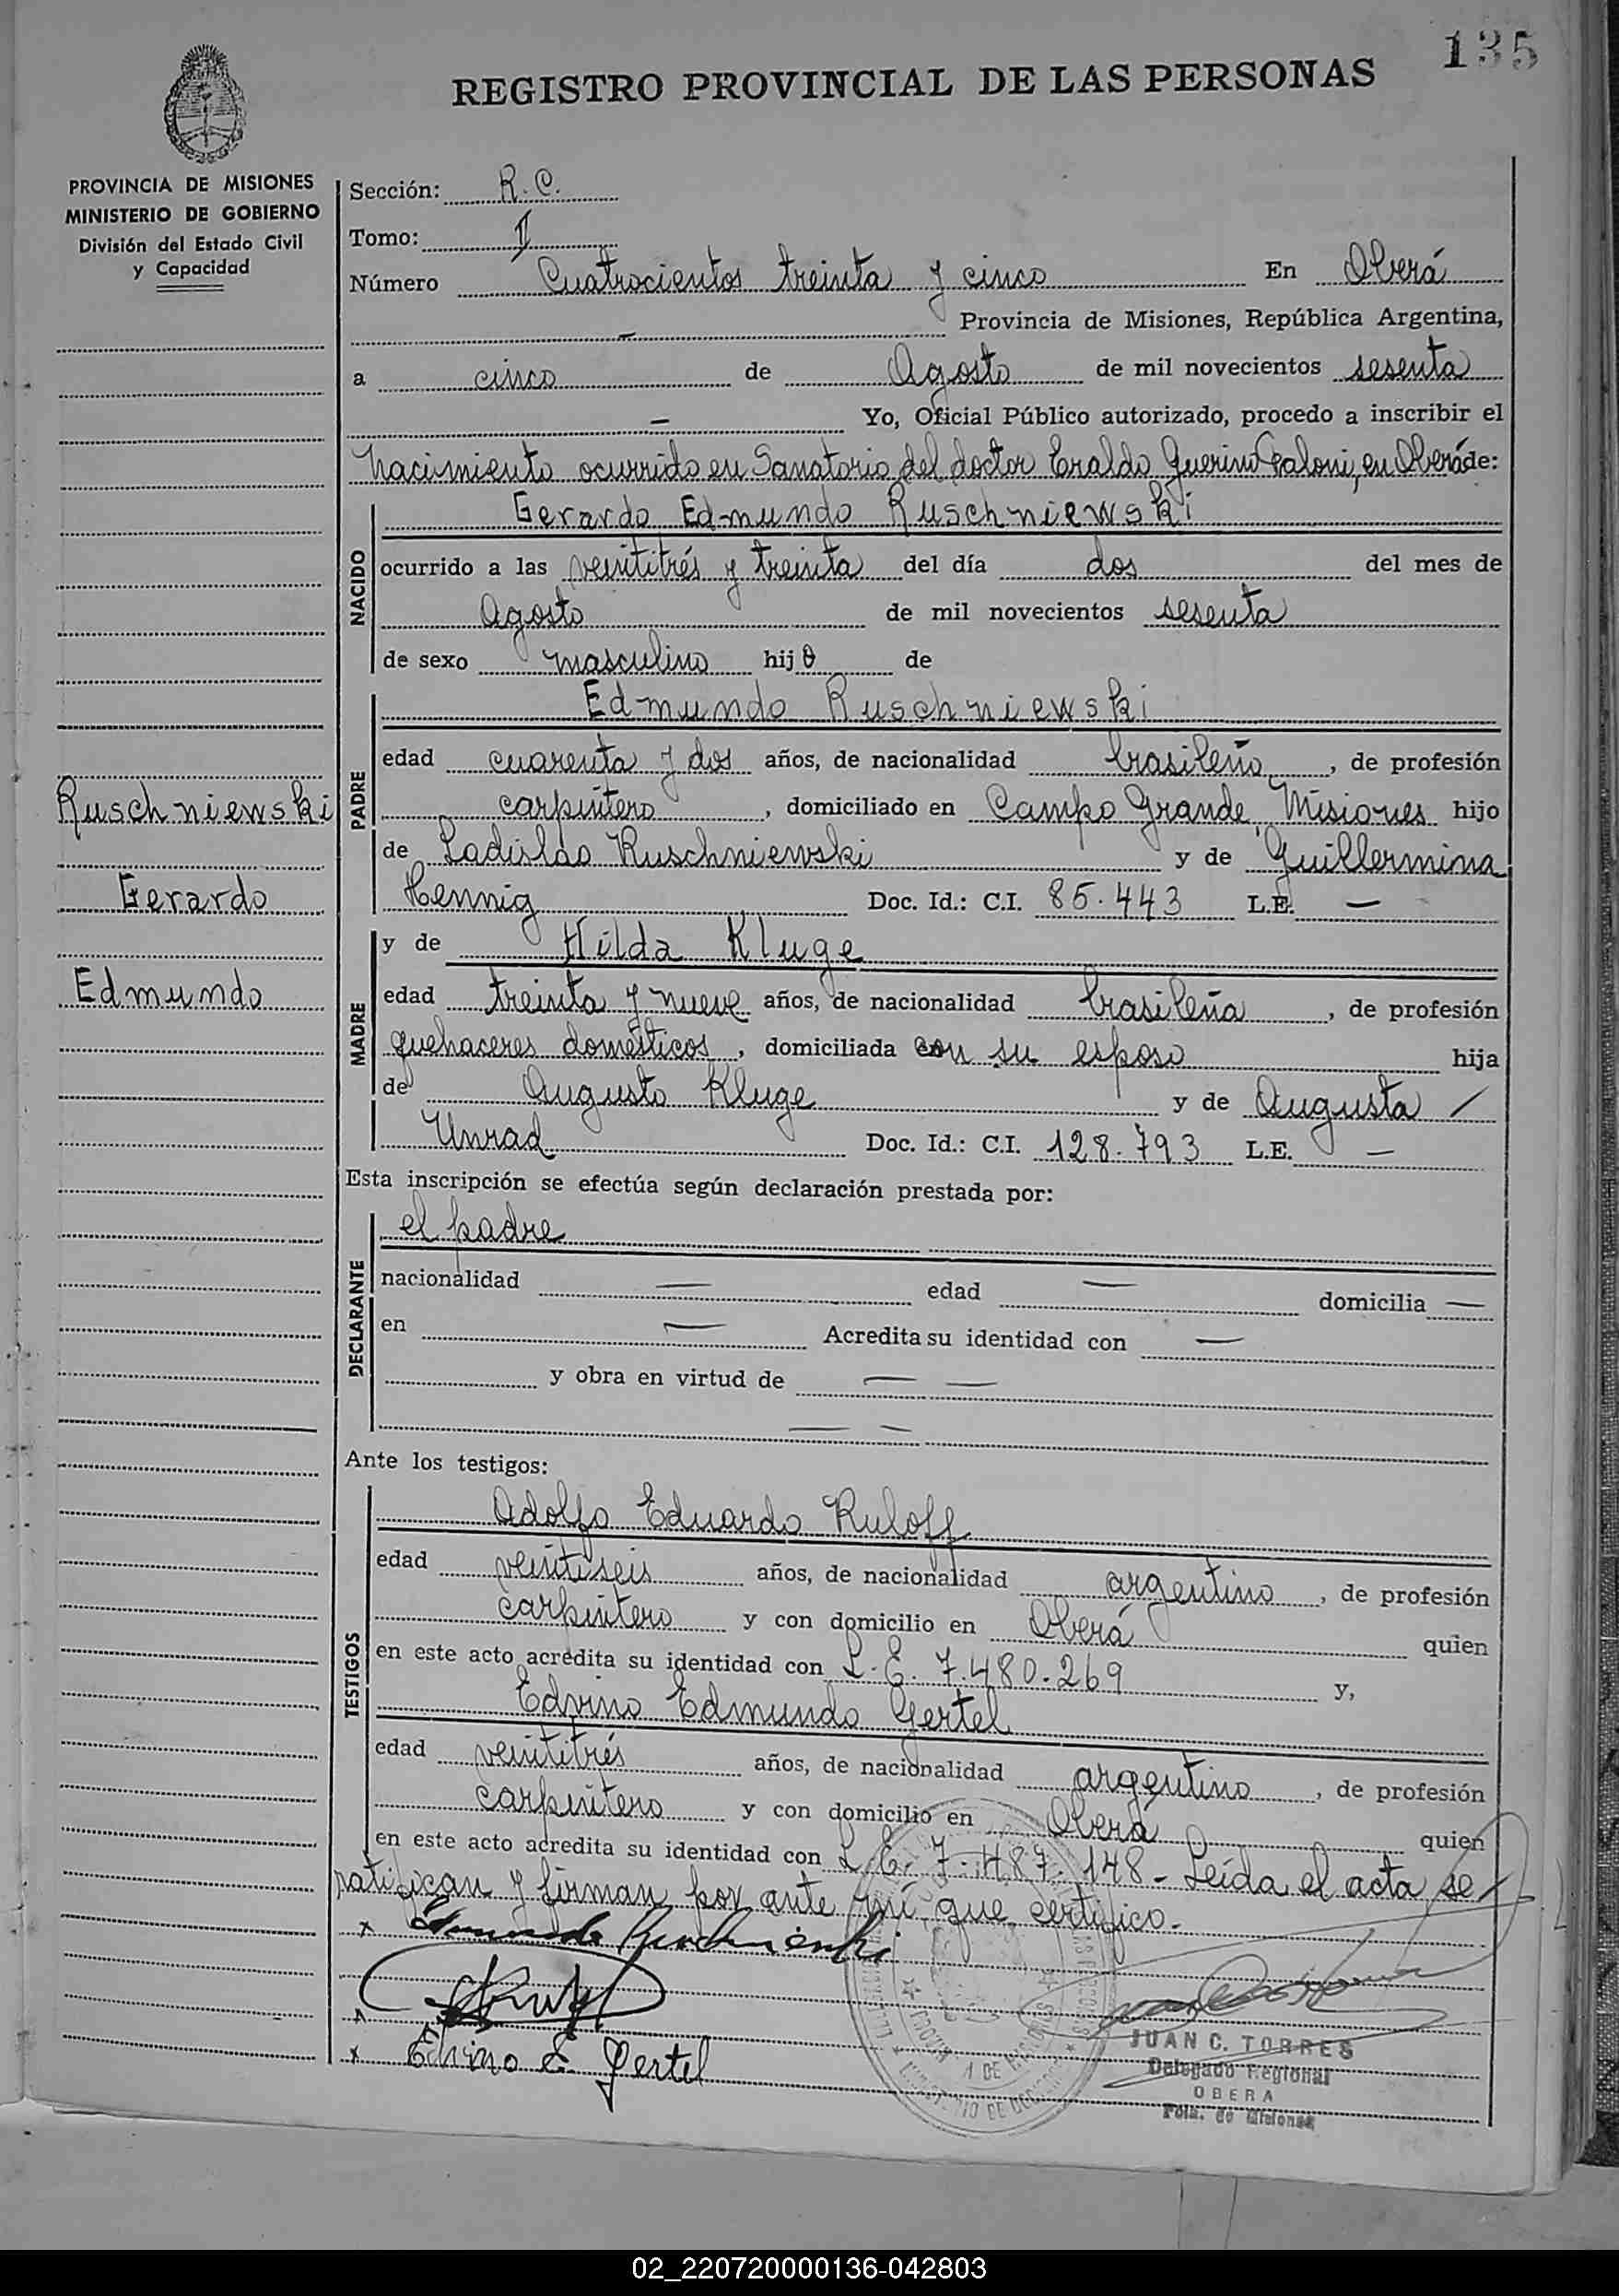 135
REGISTRO PROVINCIAL DE LAS PERSONAS
PROVINCIA DE MISIONES
MINISTERIO DE GOBIERNO
División del Estado Civil
y Capacidad
Sección: R. C.
Tomo: I
Número Cuatrocientos treinta y cinco En Oberá
— Provincia de Misiones, República Argentina,
a cinco de Agosto de mil novecientos sesenta
— Yo, Oficial Público autorizado, procedo a inscribir el
nacimiento ocurrido en Sanatorio del doctor Eraldo Guerino Galoni, en Oberá de:
NACIDO
Gerardo Edmundo Ruschniewski
ocurrido a las veintitrés y treinta del día dos del mes de
Agosto de mil novecientos sesenta
de sexo masculino hijo de
PADRE
Edmundo Ruschniewski
edad cuarenta y dos años, de nacionalidad brasileño, de profesión
carpintero, domiciliado en Campo Grande, Misiones hijo
de Ladislao Ruschniewski y de Guillermina
Hennig Doc. Id.: C.I. 85.443 L.E. —
Ruschniewski
Gerardo
Edmundo
MADRE
y de Hilda Kluge
edad treinta y nueve años, de nacionalidad brasileña, de profesión
quehaceres domésticos, domiciliada con su esposo hija
de Augusto Kluge y de Augusta /
Unrad Doc. Id.: C.I. 128.793 L.E. —
Esta inscripción se efectúa según declaración prestada por:
DECLARANTE
el padre
nacionalidad — edad — domicilia —
en — Acredita su identidad con —
y obra en virtud de — —
— —
Ante los testigos:
TESTIGOS
Adolfo Eduardo Ruloff
edad veintiseis años, de nacionalidad argentino, de profesión
carpintero y con domicilio en Oberá quien
en este acto acredita su identidad con L. E. 7.480.269 y,
Edvino Edmundo Gertel
edad veintitrés años, de nacionalidad argentino, de profesión
carpintero y con domicilio en Oberá quien
en este acto acredita su identidad con L. E. 7.487.148 - Leída el acta se
ratifican y firman por ante mí que certifico.-
x Edmundo Ruschniewski
x
x Edvino E. Gertel
JUAN C. TORRES
Delegado Regional
OBERA
Pcia. de Misiones
02_220720000136-042803